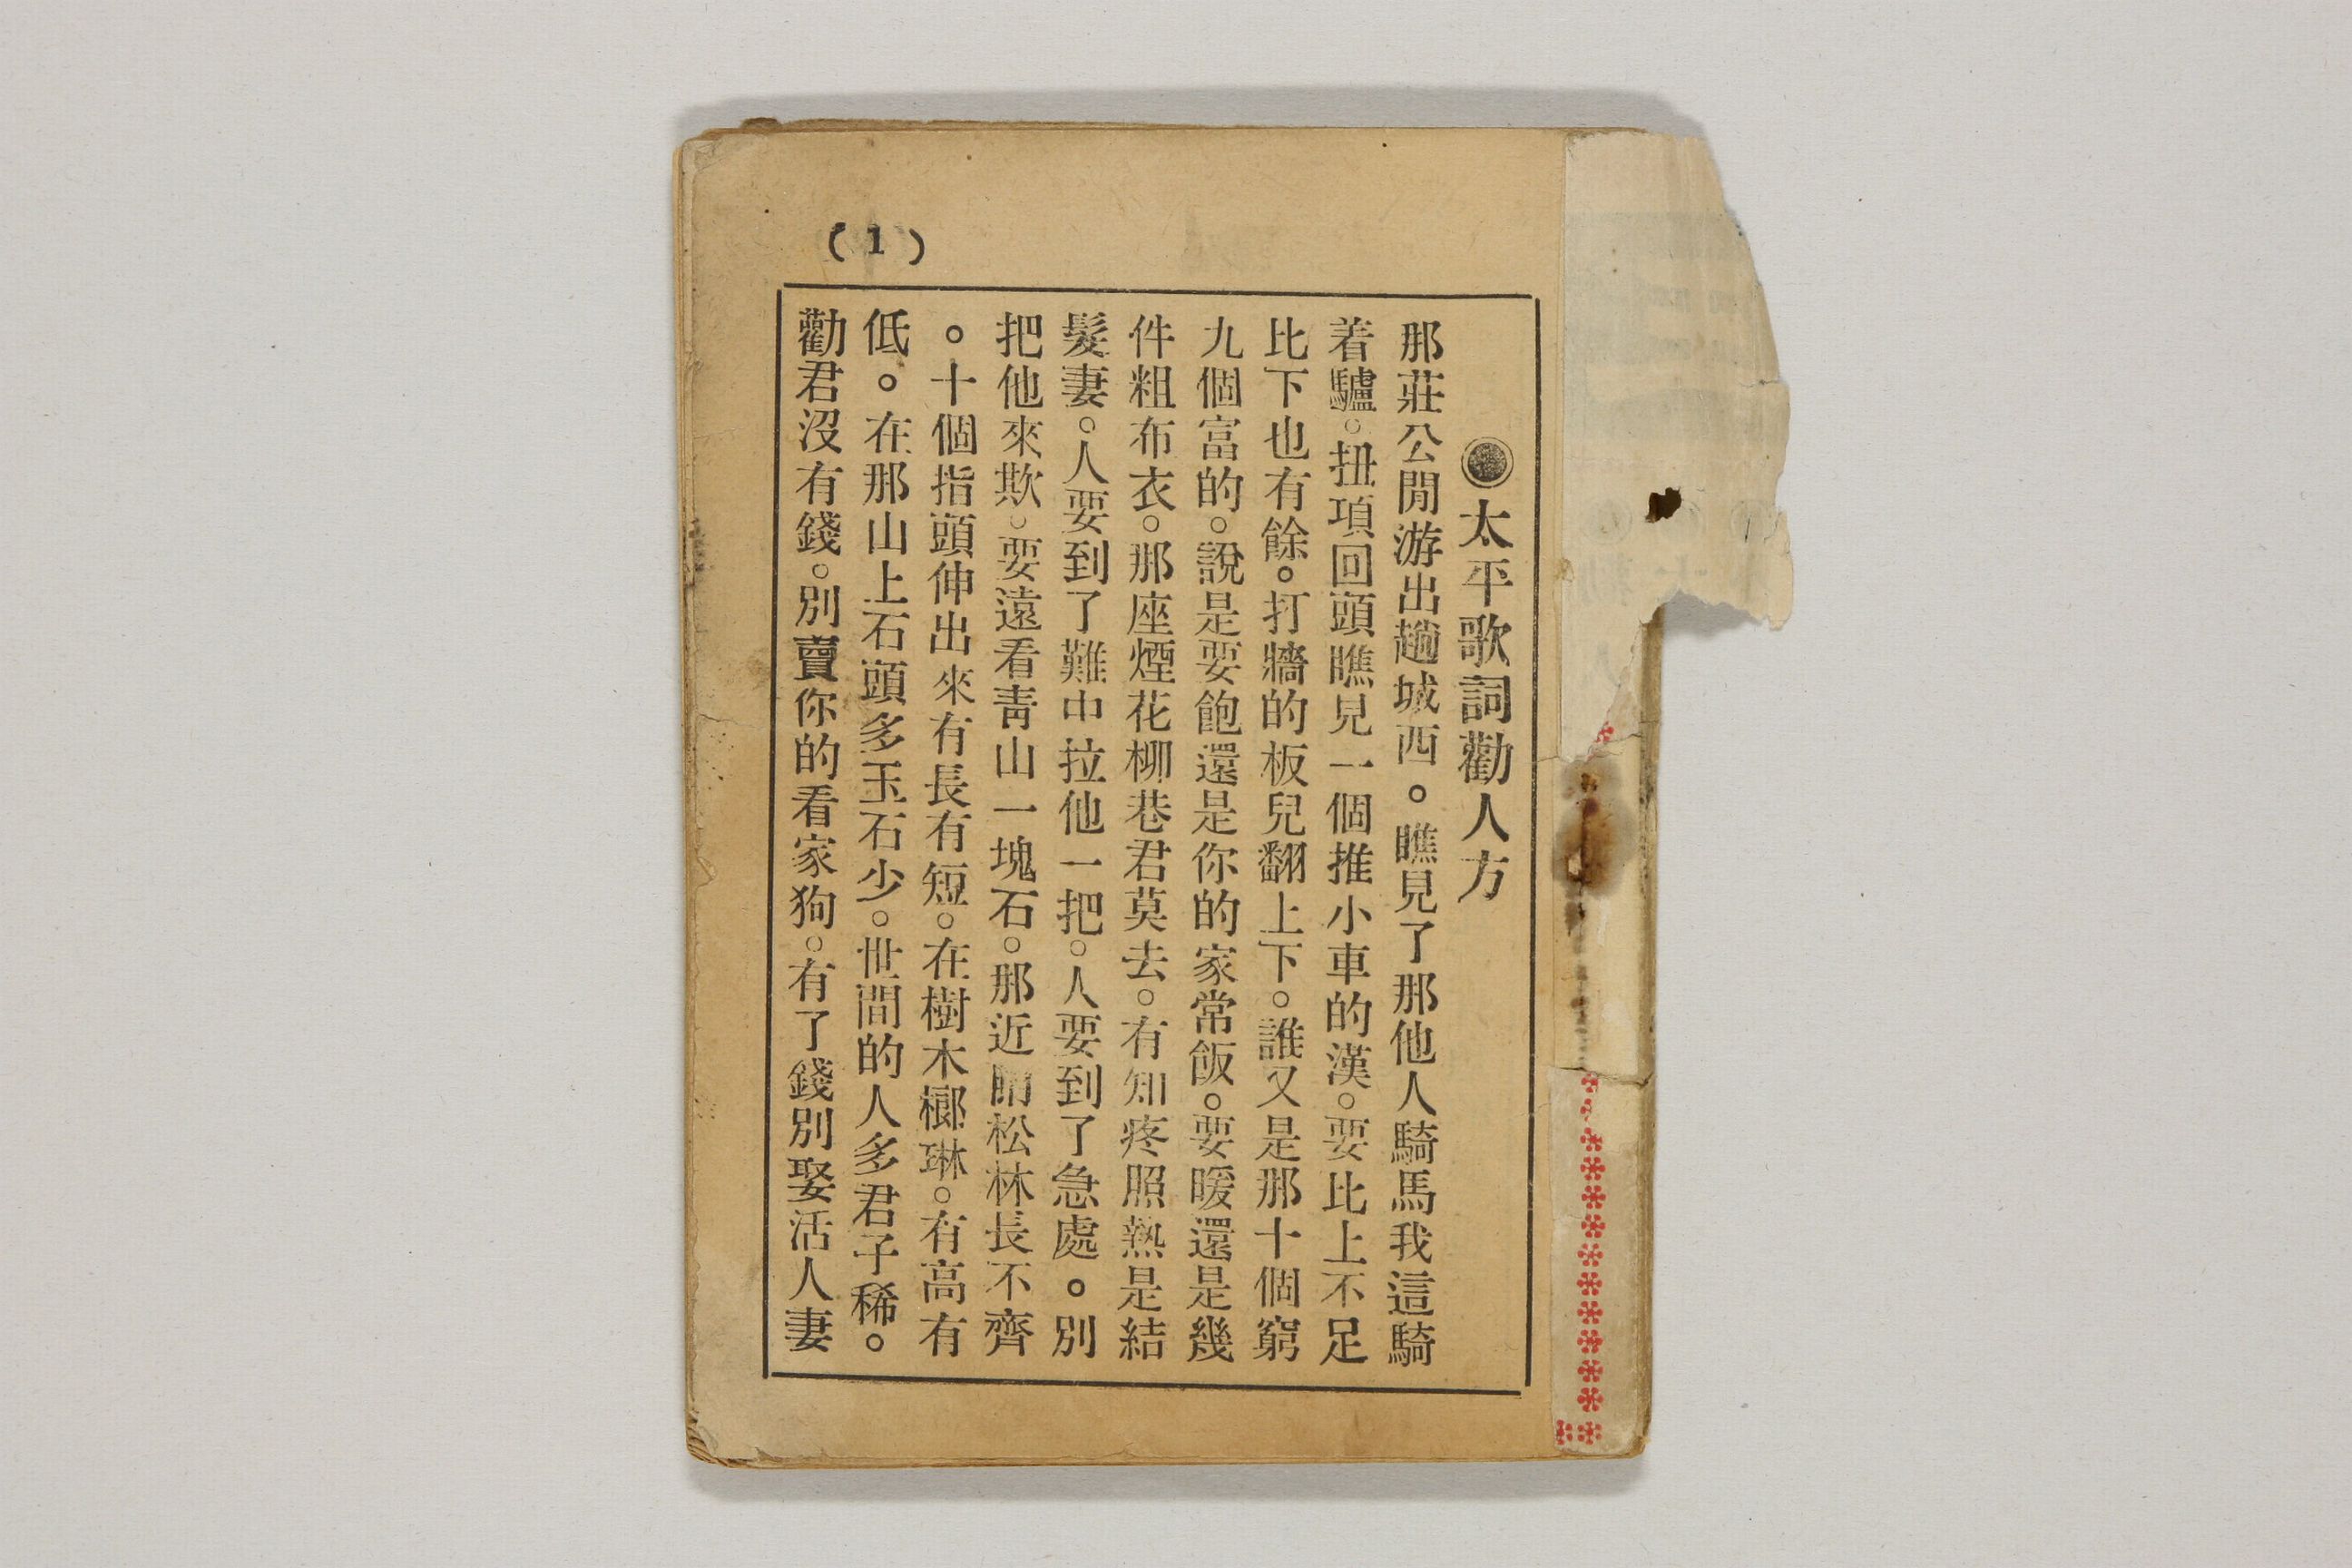 (1)
●太平歌詞勸人方
那莊公閒游出趟城西。瞧見了那他人騎馬我這騎
着驢。扭項回頭瞧見一個推小車的漢。要比上不足
比下也有餘。打牆的板兒翻上下。誰又是那十個窮
九個富的。說是要飽還是你的家常飯。要暖還是幾
件粗布衣。那座煙花柳巷君莫去。有知疼照熱是結
髮妻。人要到了難中拉他一把。人要到了急處。別
把他來欺。要遠看青山一塊石。那近睛松林長不齊
。十個指頭伸出來有長有短。在樹木榔琳。有高有
低。在那山上石頭多玉石少。世間的人多君子稀。
勸君沒有錢。別賣你的看家狗。有了錢別娶活人妻